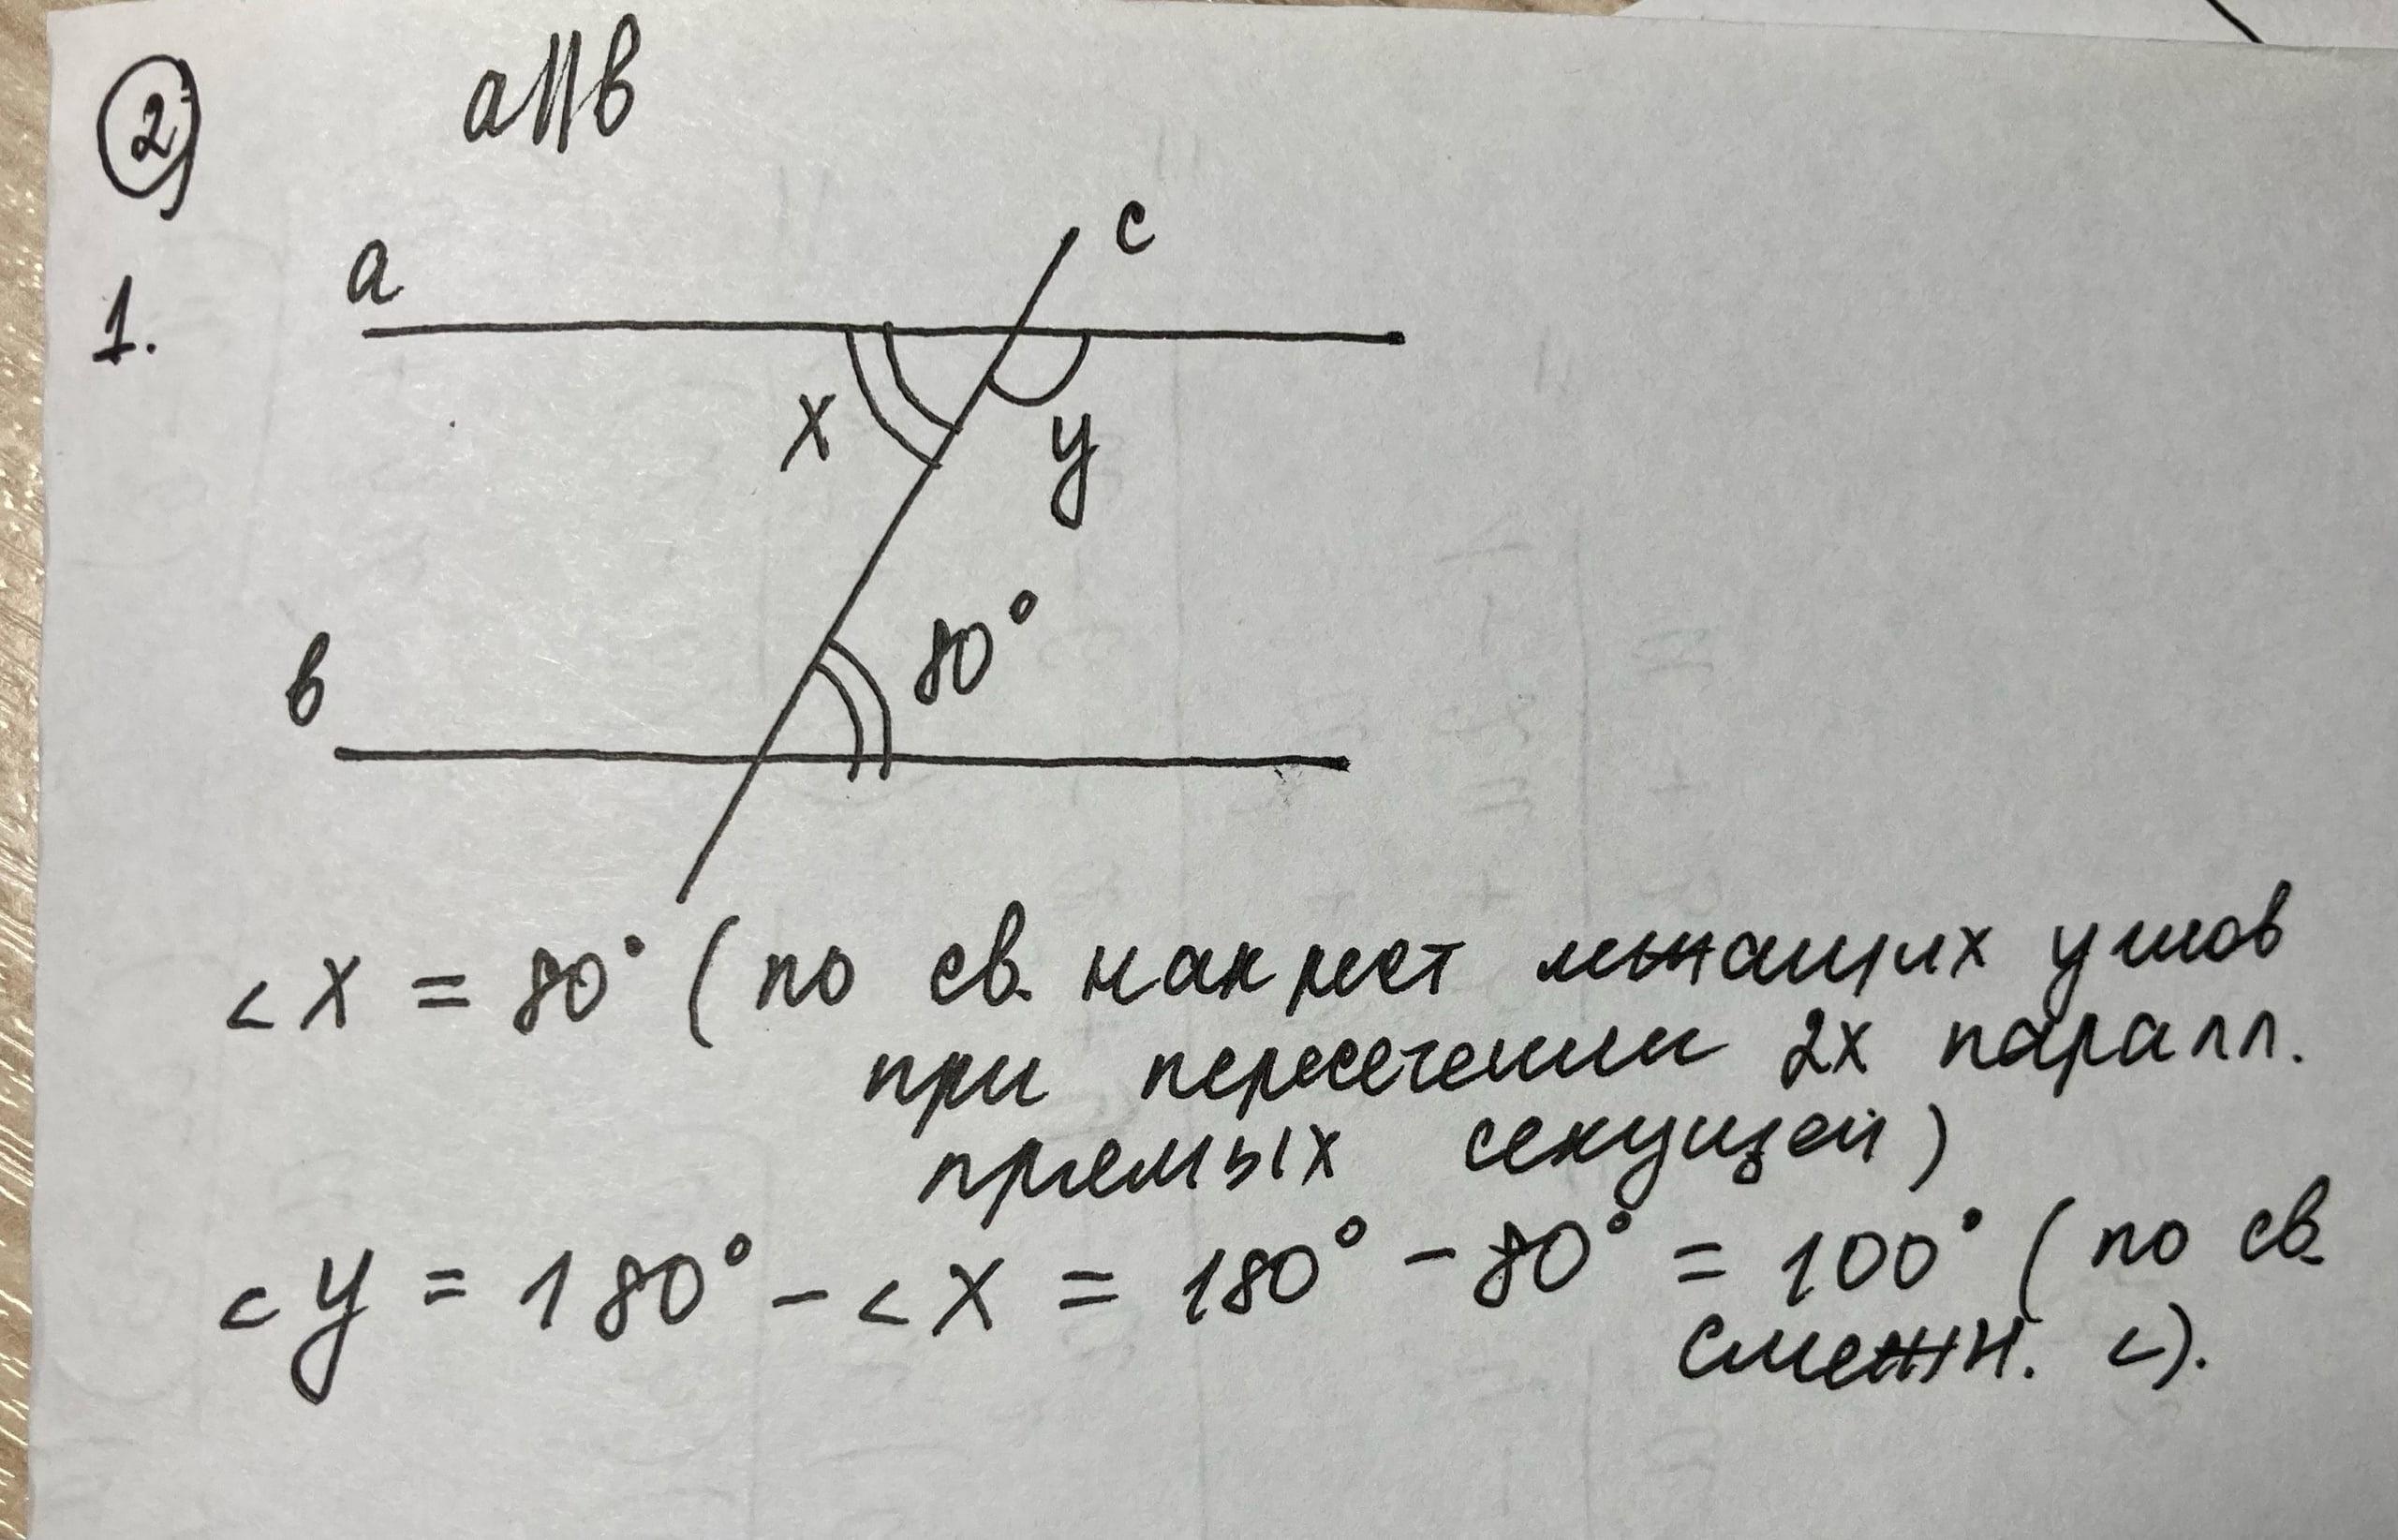 2
a||b
c
a
1.
x
y
80°
b
∠X = 80° (по св. накрест лежащих углов
при пересечении 2х паралл.
прямых секущей)
∠y = 180° - ∠X = 180° - 80° = 100° (по св.
смежн. ∠).